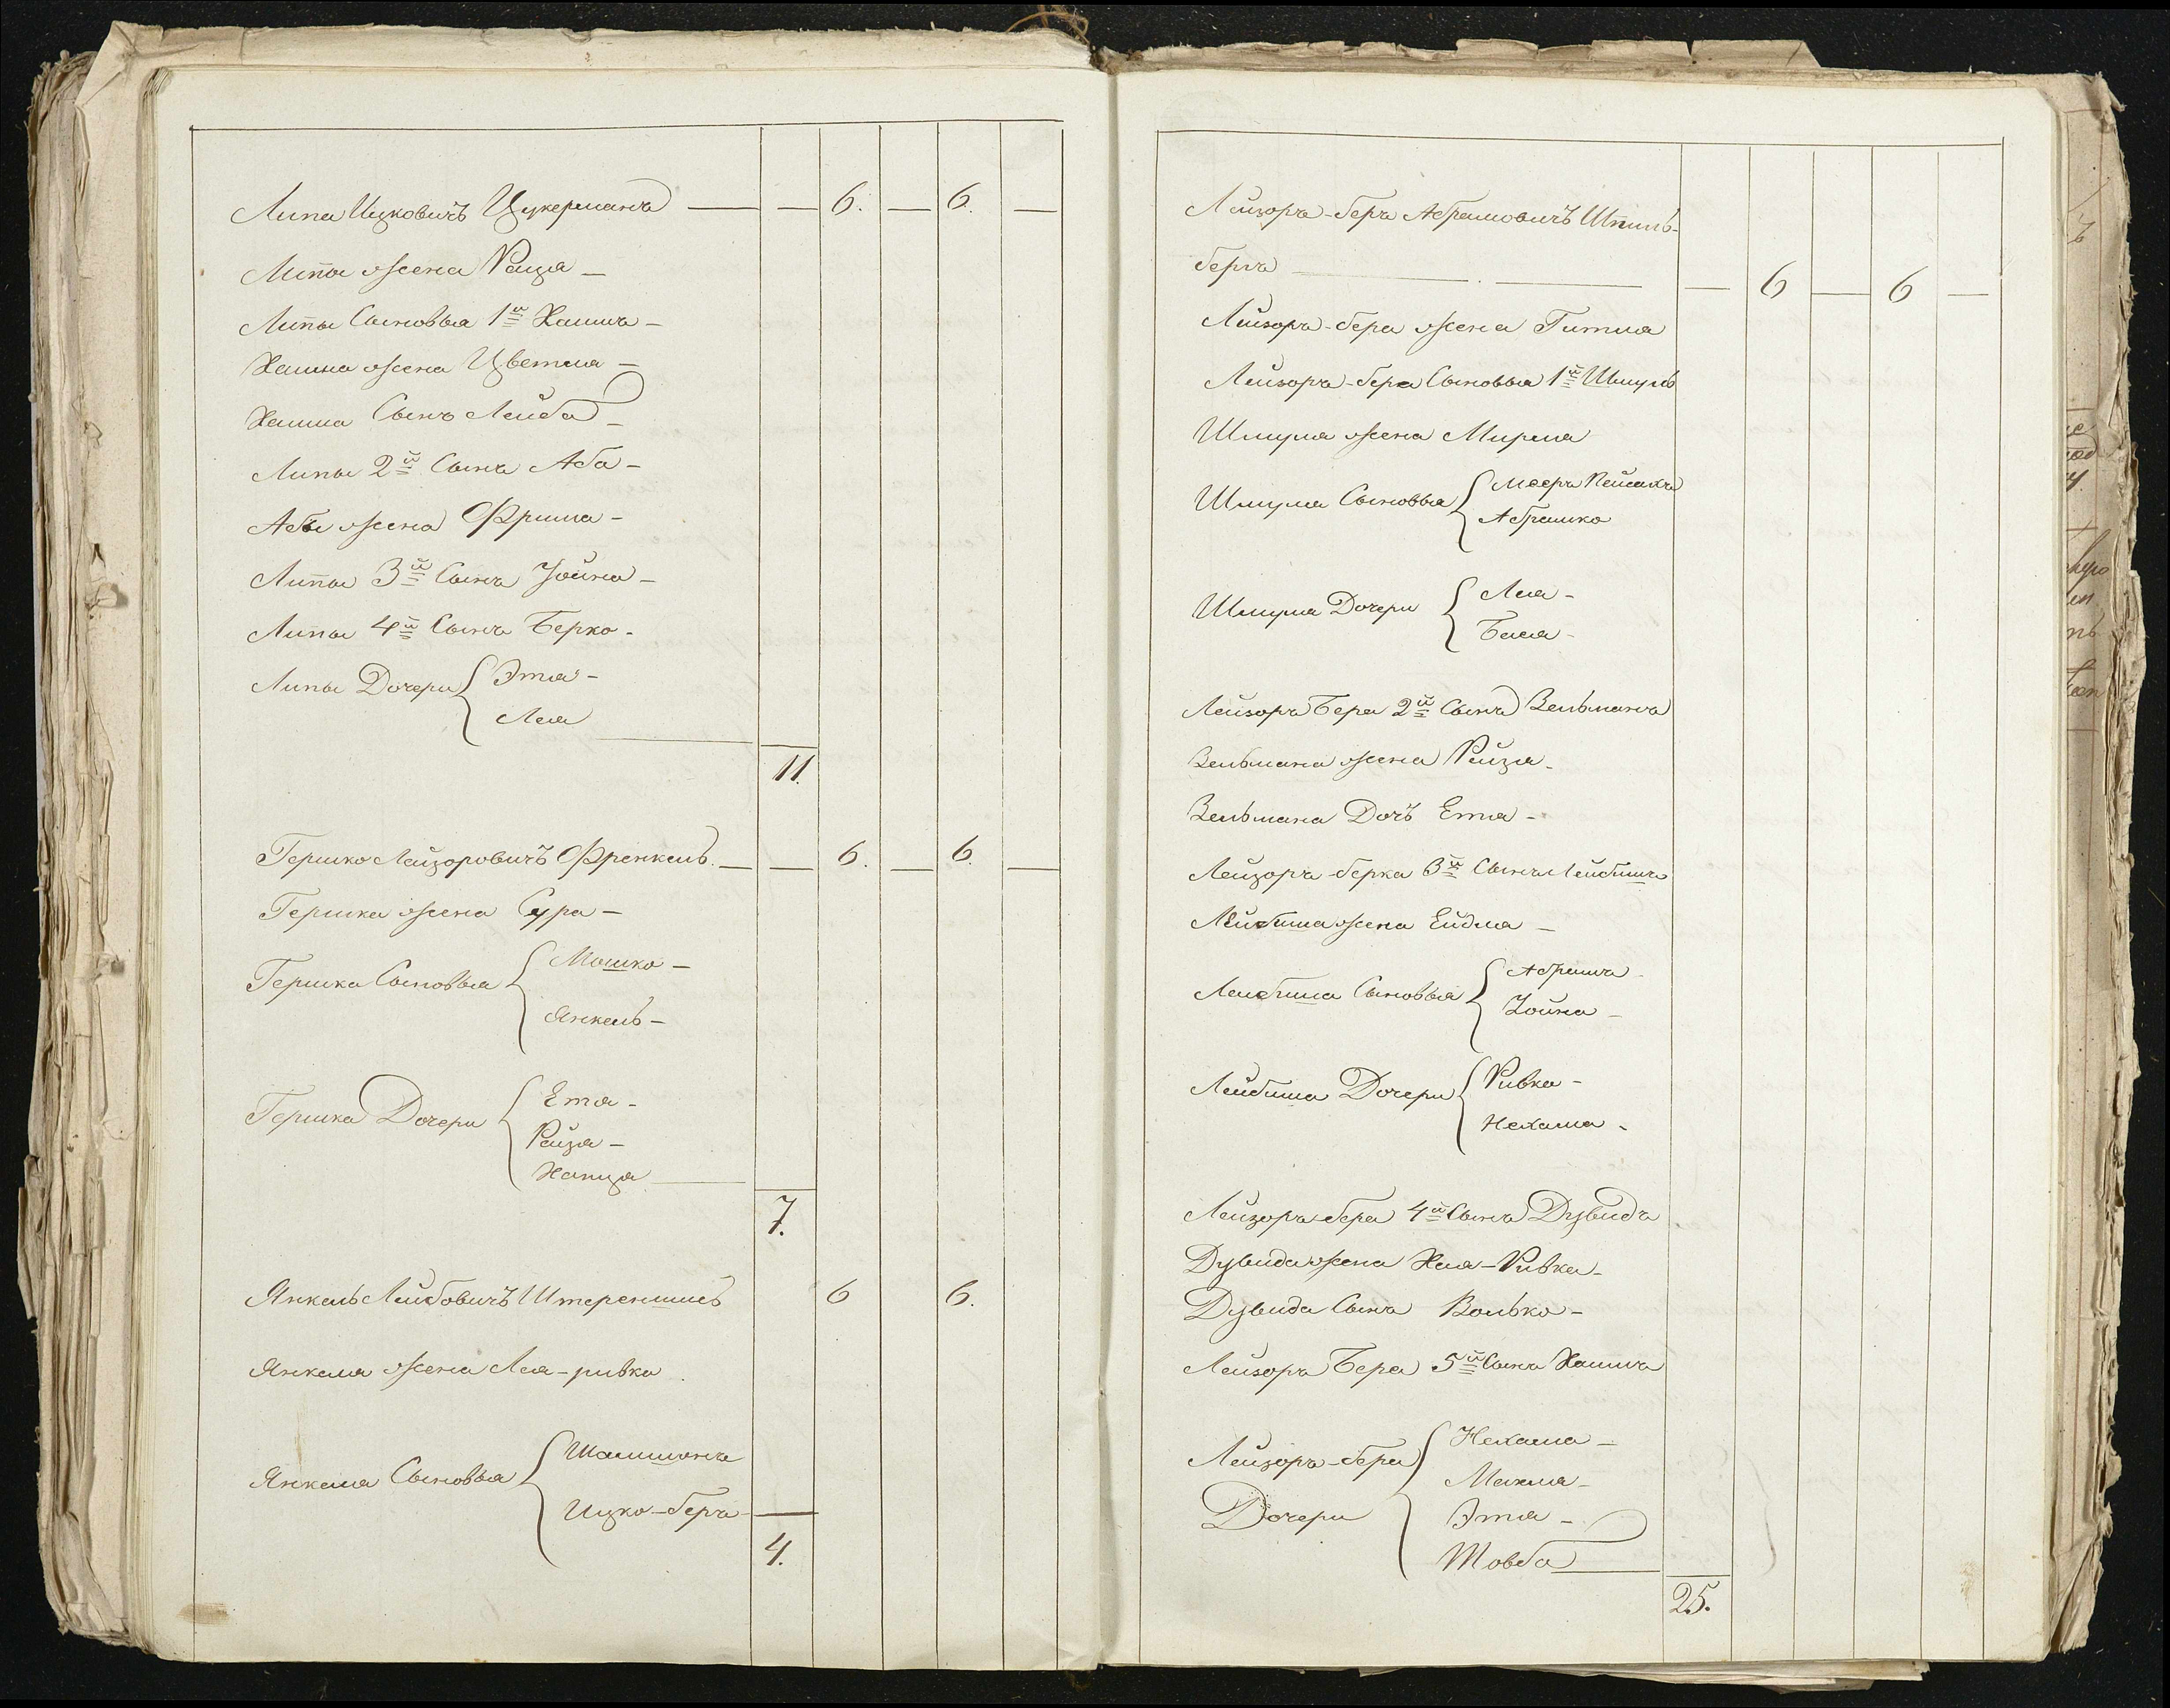 Липа Ицковичъ Цукерманъ — — 6. — 6. —
Липы жена Раца —
Липы Сыновья 1й Хаимъ —
Хаима жена Цветля —
Хаима Сынъ Лейба —
Липы 2й Сынъ Аба —
Абы жена Фрима —
Липы 3й Сынъ Іойна —
Липы 4й Сынъ Берко -
Липы Дочери { Этя -
Лея
11.
Гершко Лейзоровичъ Френкель. — — 6. — 6. —
Гершка жена Сура —
Гершка Сыновья { Мошко —
Янкель —
Гершка Дочери { Етя -
Рейзя —
Хапця
7.
Янкель Лейбовичъ Штереншисъ 6 6.
Янкеля жена Лея-ривка
Янкеля Сыновья { Шамшонъ
Ицко-беръ
4.
Лейзоръ-беръ Абрамовичъ Шпиль-
бергъ — 6 — 6 —
Лейзоръ-бера жена Гитля
Лейзоръ-бера Сыновья 1й Шмуль
Шмуля жена Мирля
Шмуля Сыновья { Мееръ Пейсахъ
Абрашко
Шмуля Дочери { Лея -
Беля -
Лейзоръ Бера 2й Сынъ Зельманъ
Зельмана жена Рейзя -
Зельмана Дочь Етя -
Лейзоръ-берка 3й Сынъ Лейбишъ
Лейбиша жена Ейдля —
Лейбиша Сыновья { Абрамъ -
Іойна —
Лейбиша Дочери { Ривка -
Нехама -
Лейзоръ-бера 4й Сынъ Дувидъ
Дувида жена Хая-Ривка -
Дувида Сынъ Волько -
Лейзоръ Бера 5й Сынъ Хаимъ
Лейзоръ-бера { Нехама —
Махля -
Дочери Этя -
Товба
25.